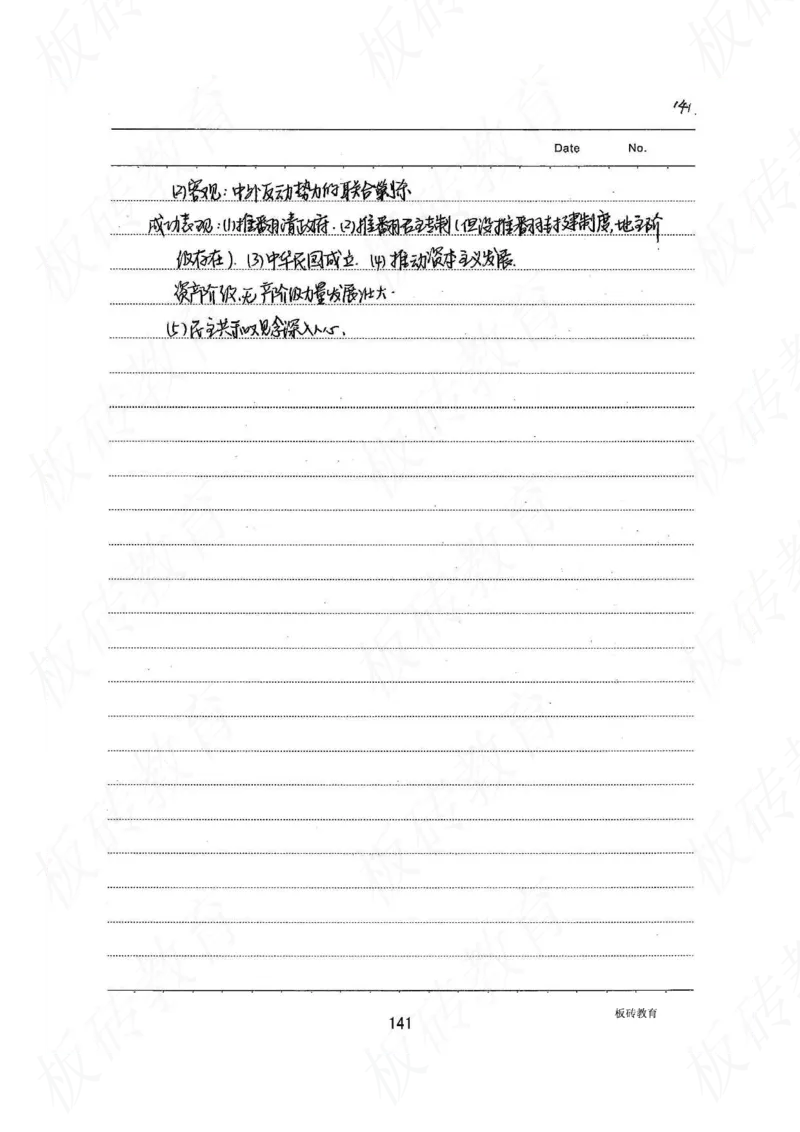 141.
Date No.
(2)客观:中外反动势力的联合绞杀
成功表现:(1)推翻清政府.(2)推翻君主专制(但没推翻封建制度,地主阶
级存在).(3)中华民国成立.(4)推动资本主义发展.
资产阶级.无产阶级力量发展壮大.
(5)民主共和观念深入人心.
141
板砖教育